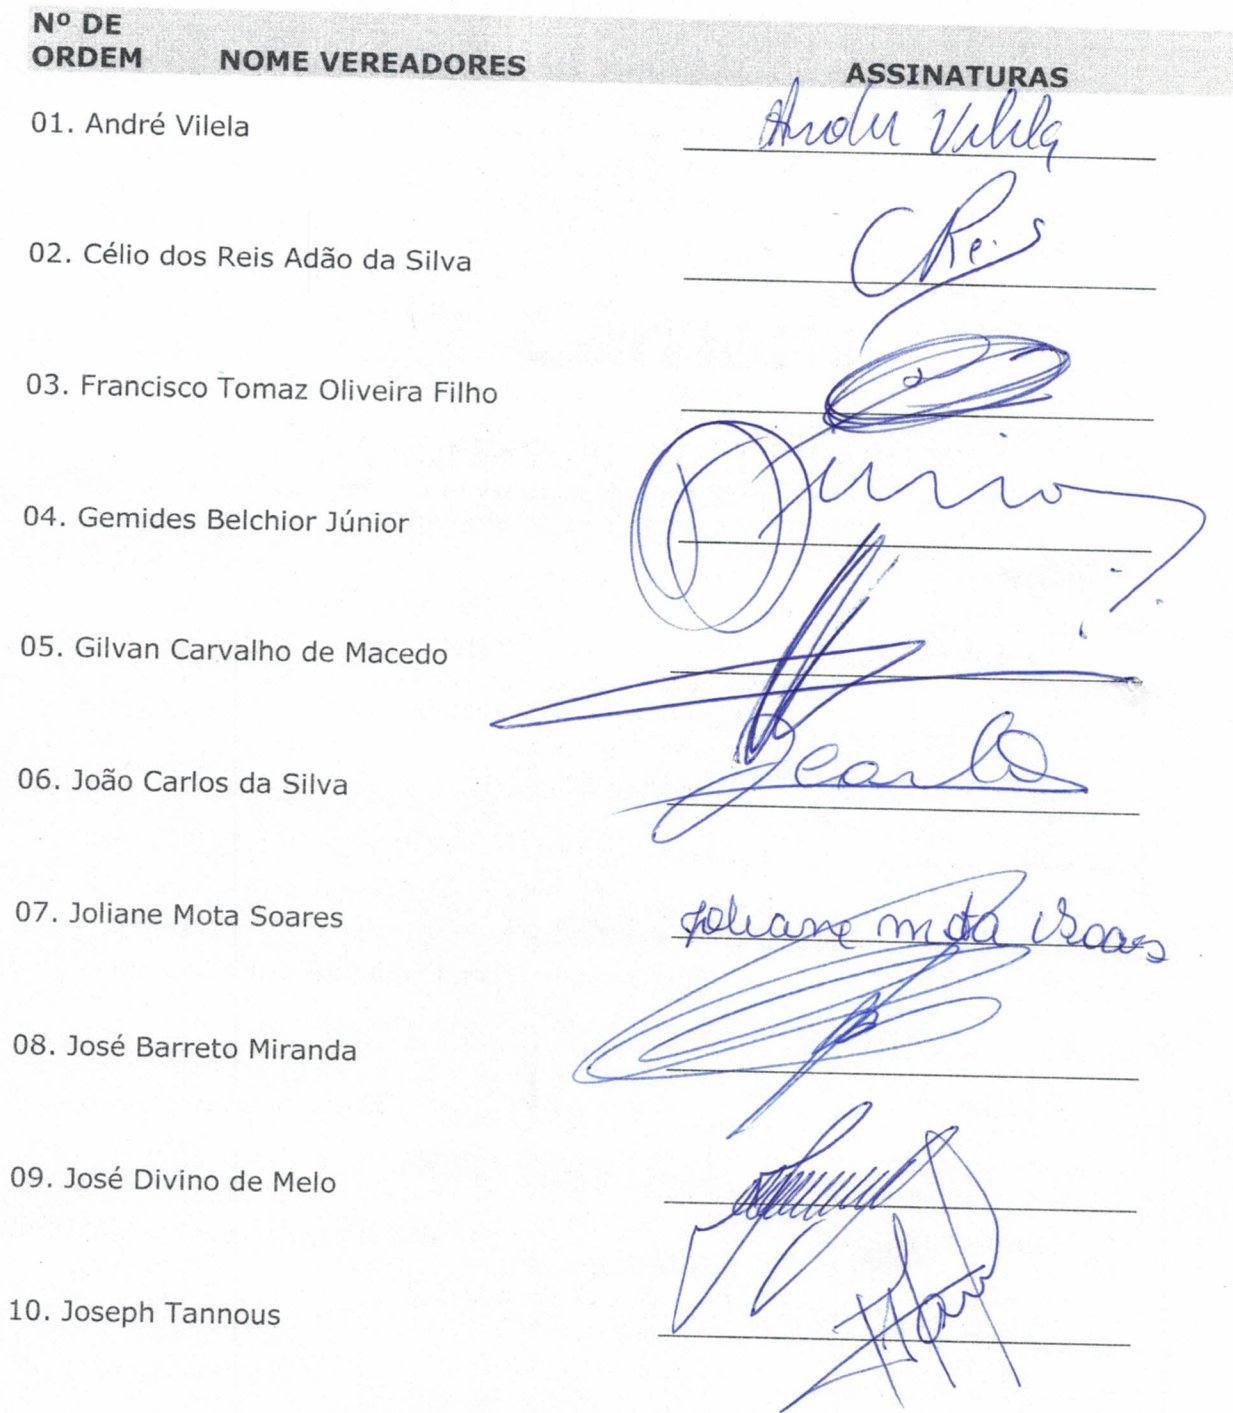 Nº DE
ORDEM NOME VEREADORES ASSINATURAS
01. André Vilela André Vilela
02. Célio dos Reis Adão da Silva CReis
03. Francisco Tomaz Oliveira Filho
04. Gemides Belchior Júnior Júnior
05. Gilvan Carvalho de Macedo
06. João Carlos da Silva Jcarlos
07. Joliane Mota Soares Joliane mota Soares
08. José Barreto Miranda
09. José Divino de Melo
10. Joseph Tannous